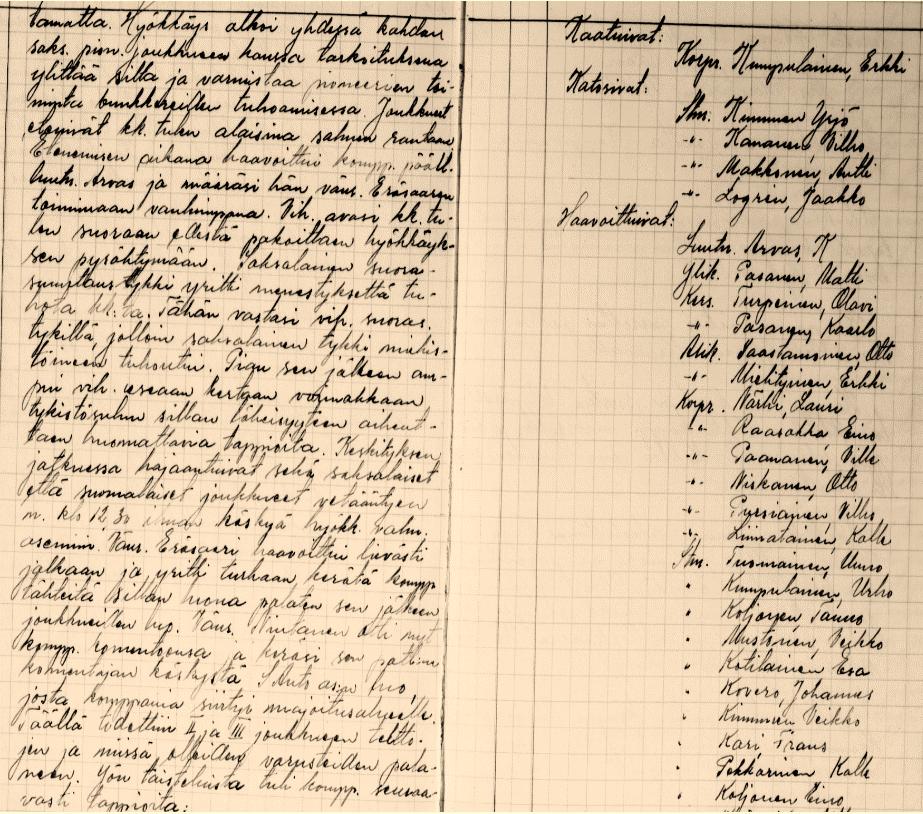 tamatta. Hyökkäys alkoi yhdessä kahden
saks. pion. joukkueen kanssa tarkoituksena
ylittää silta ja varmistaa pioneerien toi-
minta bunkkereitten tuhoamisessa. Joukkueet
etenivät kk. tulen alaisina sahan rantaan
Etenemisen aikana haavoittui komp. pääll.
luutn. Arvas ja määräsi hän vänr. Eräsaaren
toimimaan vanhimpana. Vih. avasi kk. tu-
len suoraan edestä pakoittaen hyökkäyk-
sen pysähtymään. Saksalainen suora-
suuntaus tykki yritti menestyksettä tu-
hota kk. Tähän vastasi vih. suoras.
tykillä, jolloin saksalainen tykki miehis-
töineen tuhoutui. Pian sen jälkeen am-
pui vih. useaan kertaan voimakkaan
tykistösulun sillan läheisyyteen aiheut-
taen huomattavia tappioita. Keskityksen
jatkuessa hajaantuivat sekä saksalaiset
että suomalaiset joukkueet vetääntyen
n. klo 12,30 ilman käskyä hyökk. valm.
asemiin. Vänr. Eräsaari haavoittui lievästi
jalkaan ja yritti turhaan kerätä komp.
tähteitä sillan luona palaten sen jälkeen
joukkueitten luo. Vänr. otti nyt
komp. komentoonsa ja keräsi sen patl:n
komentajan käskystä luo,
josta komppania siirtyi majoitusalueelle.
Täällä todettiin II ja III joukkueen teltto-
jen ja niissä olleiden varusteiden pala-
neen. Yön taisteluista tuli komp. seuraa-
vasti tappioita:
Kaatuivat:
Korpr. Kumpulainen, Erkki
Katosivat:
Stm. Kinnunen Yrjö
-"- Kananen, Vilho
-"- Makkonen, Antti
-"- Logrén, Jaakko
Haavoittuivat:
Luutn. Arvas, K
Ylik. Pasanen, Matti
Kers. Turpeinen, Olavi
-"- Pasanen, Kaarlo
Alik. Saastamoinen, Otto
-"- Miettinen, Erkki
Korpr. Närhi, Lauri
-"- Raasakka Eino
-"- Paananen, Ville
-"- Niskanen, Otto
-"- Pursiainen, Vilho
-"- Liimatainen, Kalle
Stm. Tuomainen, Unno
" Kumpulainen, Urho
" Koljonen Tauno
" Mustonen, Veikko
" Kotilainen Esa
" Kovero, Johannes
" Kinnunen Veikko
" Kari, Frans
" Pekkarinen Kalle
" Koljonen Eino,